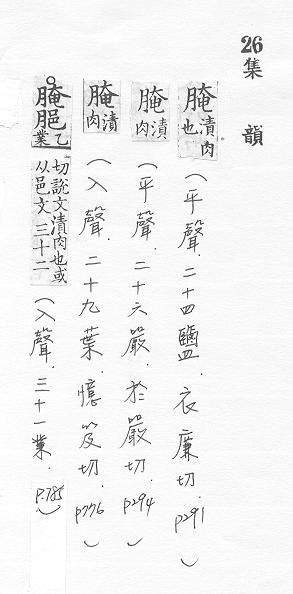 26 集 韻
腌 漬肉也 (平聲.二十四鹽.衣廉切.p291)
腌 漬肉 (平聲.二十六嚴.於嚴切.p294)
腌 漬肉 (入聲.二十九葉.憶笈切.p776)
腌䐛 乙業切說文漬肉也或从邑文三十二 (入聲.三十一業.p.785)